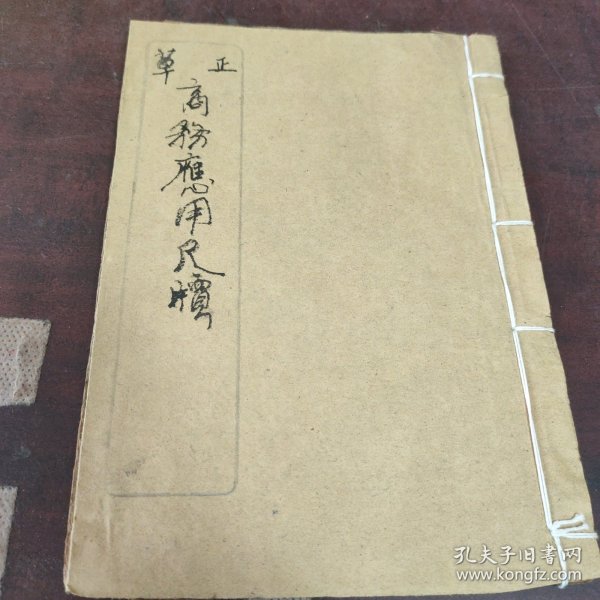 正草
商務應用尺牘
孔夫子旧书网
www.kongfz.com